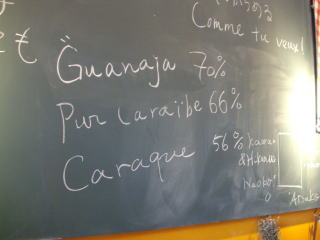 Comme tu veux!
Guanaja 70%
Pur Caraïbe 66%
Caraque 56%
Naoko